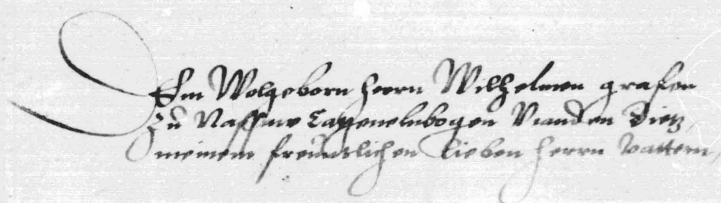 Dem Wolgeborn herrn Wilhelmen grafen
zu Nassaw Catzenelnbogen Vianden Dietz,
meinem freuntlichen lieben herrn vattern,